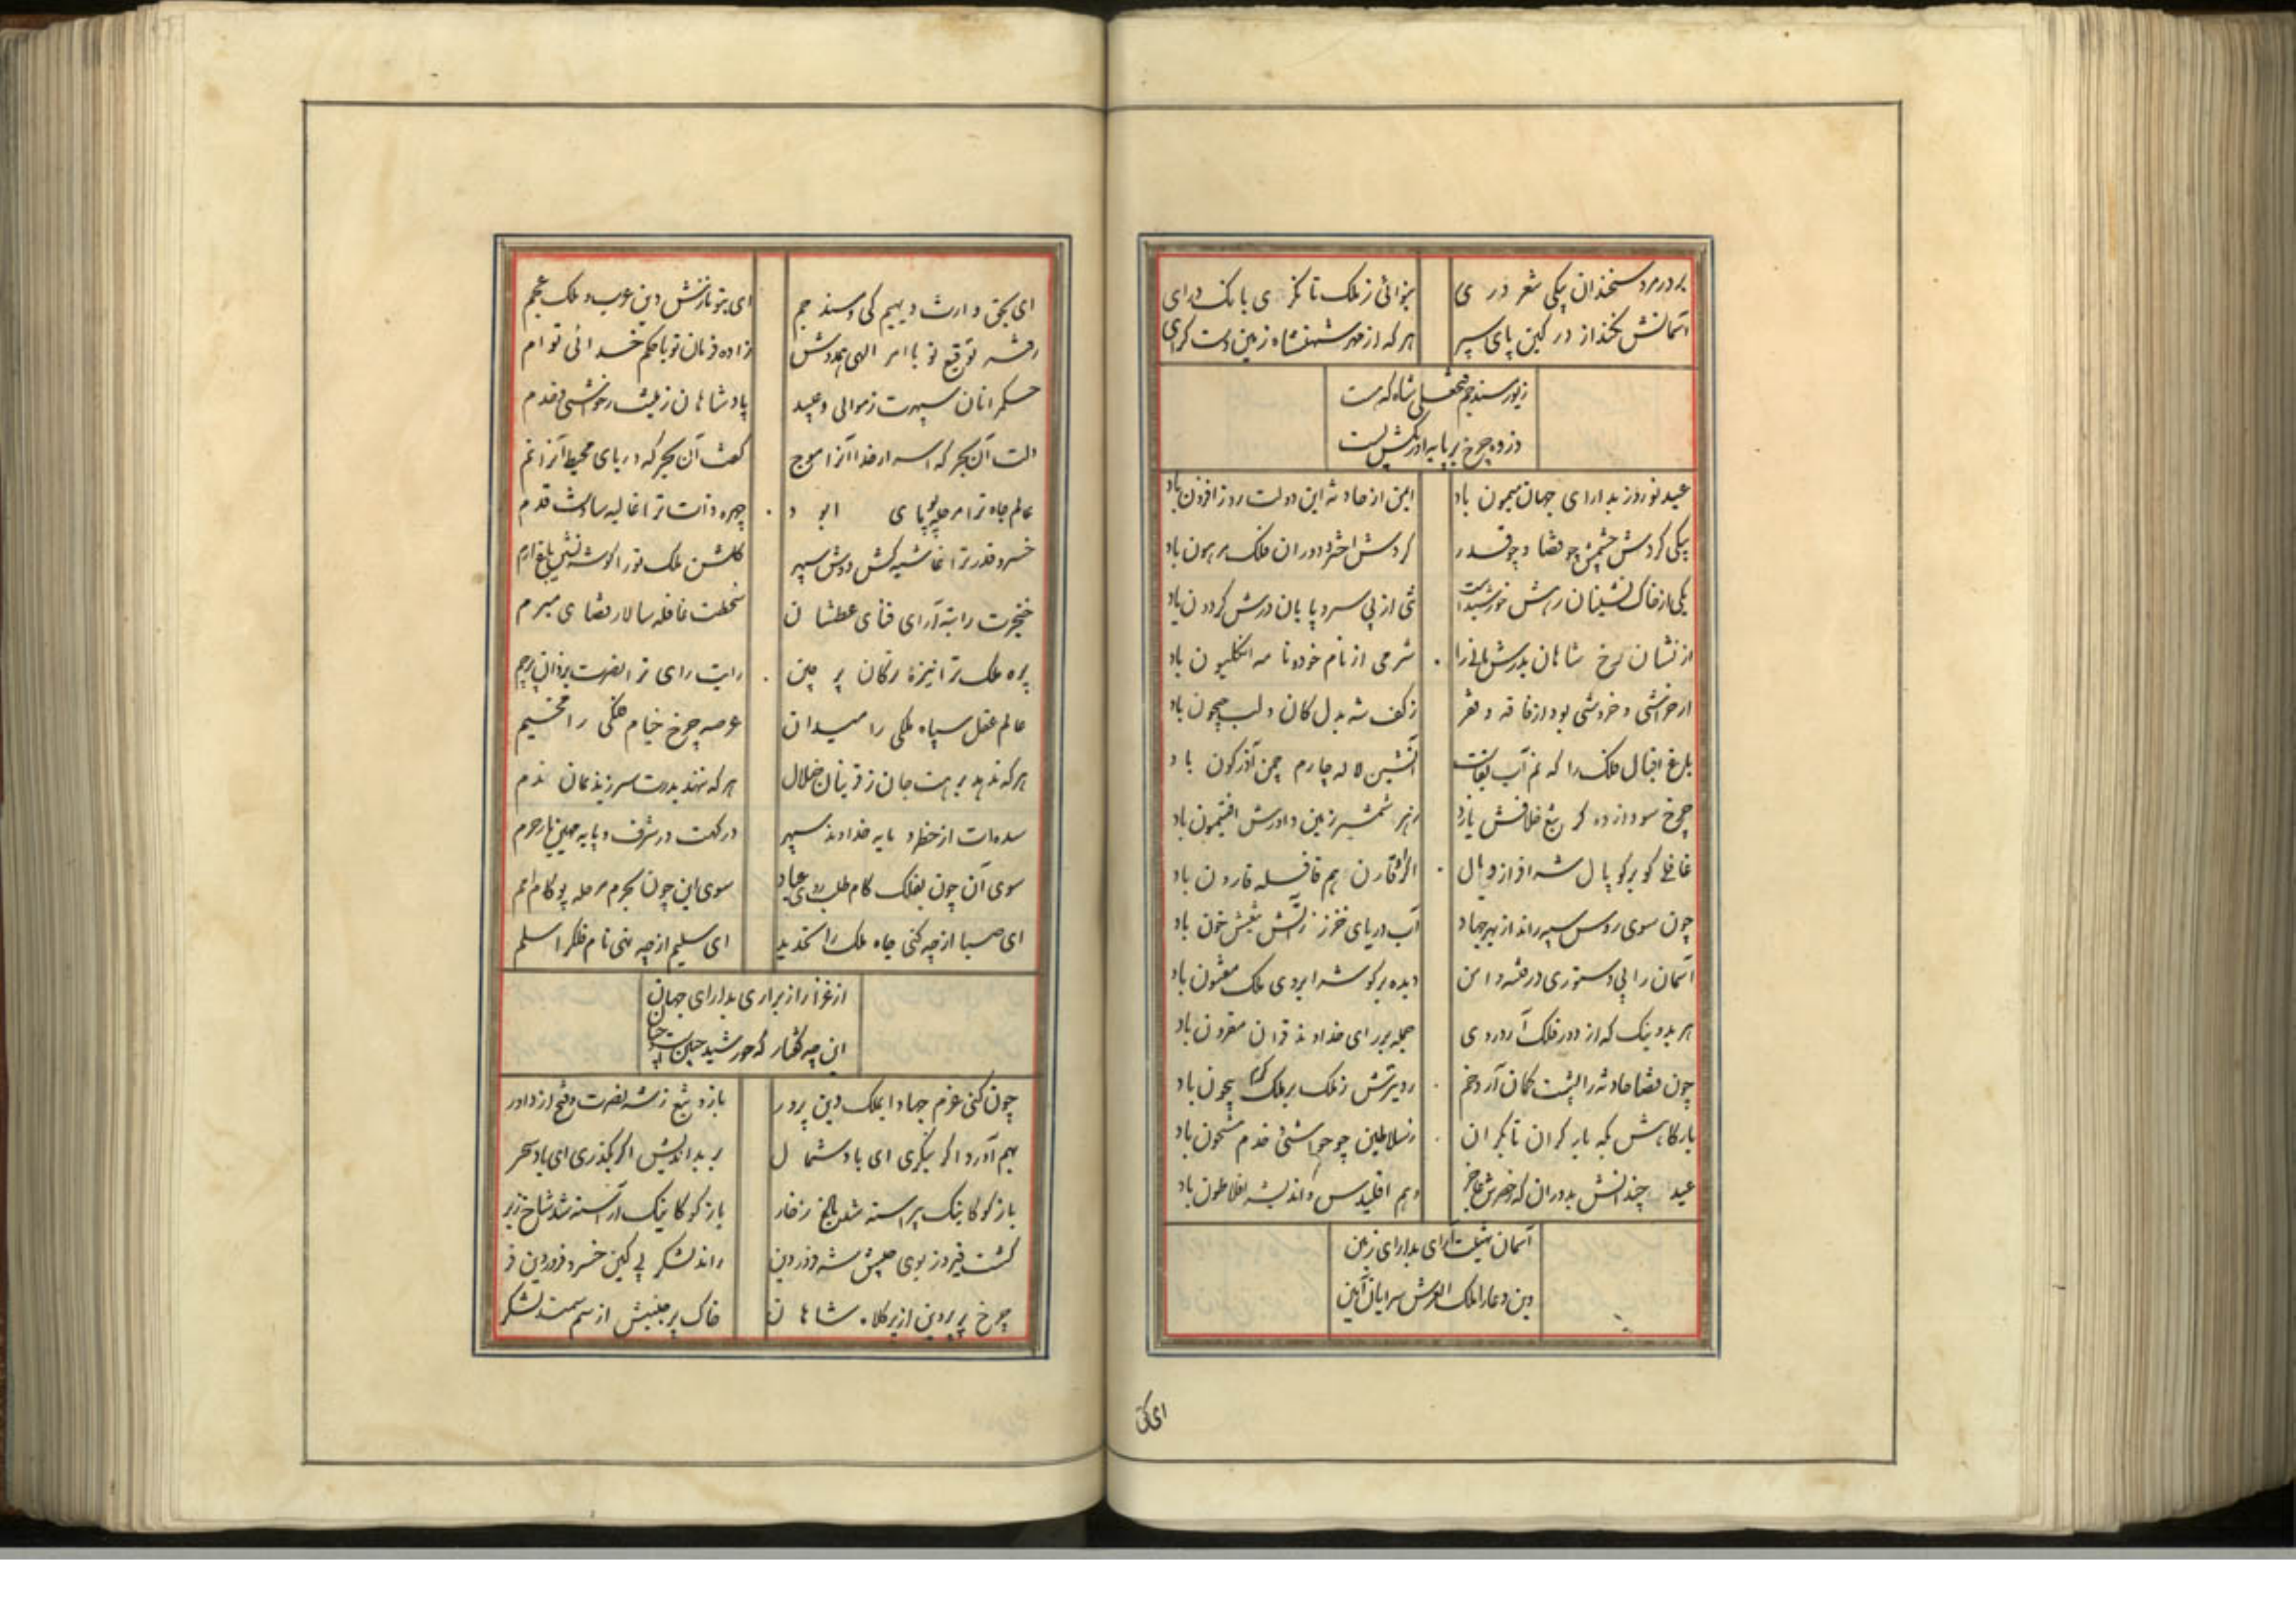 بر در مرد سخندان یکی شعر در ی
بنوائی ز ملک تا نگری بانک درای
آسمانش نکند از در کین پای سپر
هر که از مهر شهنشاه زمین دست گرای
زیور مسند جم فتحعلی شاه که هست
دزوه چرخ بر پایه اورنگش پست
عید نوروز بدارای جهان میمون باد
ایمن از حادثه این دولت روز افزون باد
پیکی گردش چشمش چو قضا و چو قدر
گردش اختر و دوران فلک مرهون باد
یکی از خاک نشینان رهش خورشید است
ثی از بی سر و پایان درش گردون باد
از نشان رخ شاهان بدرش مانی را
شرمی از نام خود و نامه انگلیون باد
ار خراشی و خروشی بود از فاقه و فقر
ز کف شه بدل کان و لب جیحون باد
باغ اقبال ملک را که نم آب بقاست
آتشین لاله چارم چمن آذرگون باد
چرخ سودازده گر تیغ خلافش یازد
زهر شمشیر زمین داورش افتیمون باد
غافلی کو بر کوپال شه افرازد یال
اگر قارن هم قافله قارون باد
چون سوی روس سپه راند از بهر جهاد
آب دریای خزر ز آتش تیغش خون باد
آسمان را پی دستوری در فتنه و امن
دیده بر گوشه ابروی ملک مفتون باد
هر بد و نیک که از دور فلک آرد روی
جمله بر رای خداوند قران مقرون باد
چون قضا حادثه را پشت کمان آرد خم
بارگاهش که بار کران تا بکران
ز سلاطین چو حواشی و خدم مشحون باد
عید چندانش بدوران که
وهم اقلیدس و اندیشه افلاطون باد
آسمان تهنیت آرای بدارای زمین
وین دعا را ملک العرش سرایان آمین
ای بحق
ای بحق وارث دیهیم کی و مسند جم
ای بتو نازش دین عرب و ملک عجم
رفته توقیع تو با امر الهی همدوش
زاده فرمان تو با حکم خدائی توام
حکمرانان سپهرت ز موالی و عبید
پادشاهان زمینت ز حواشی و خدم
دلت آن بحر که اسرار خدا آنرا موج
کفت آن بحر که دریای محیط آنرا نم
عالم جاه ترا مرحله پویای ابو د
چهره ذات ترا غالیه سا دست قدم
خسرو قدر ترا غاشیه کش دوش سپهر
گلشن ملک تو را گوشه نشین باغ ارم
خنجرت راتبه آرای فنای عطشان
سخطت قافله سالار قضای مبرم
پره ملک ترا نیزه ترکان پر چین
رایت رای ترا نصرت یزدان پرچم
عالم عقل سپاه ملکی را میدان
عرصه چرخ خیام فلکی را مخیم
هر که ندهد برهت جان ز قرینان ضلال
هر که ننهد بدرت سر ز ندیمان ندم
سده ات از خطر و پایه خداوند سپهر
درگهت در شرف و پایه
سوی آن چون بفلک کام طلب روی عباد
سوی این چون بحرم مرحله پو گام امم
ای صبا از چه کنی جاه ملک را تحدید
ای سلیم از چه نهی نام فلک را سلم
از غزا راز برآری بدارای جهان
این چه گفتار که خورشید
چون کنی عزم جهاد ایملک دین پرور
بازد تیغ ز شه نصرت و فتح از داور
بهم آورد اگر بنگری ای باد شمال
بر بداندیش اگر بگذری ای باد سحر
بازگو کاینک پیراسته شد باغ ز خار
بازگو کاینک آراسته شد شاخ ز بر
گشت فیروز بوی جیش شه فروردین
راند لشکر پی کین خسرو فروردین فر
چرخ پر پروین از پر کلاه شاهان
خاک پر جنبش از سم سمند لشکر